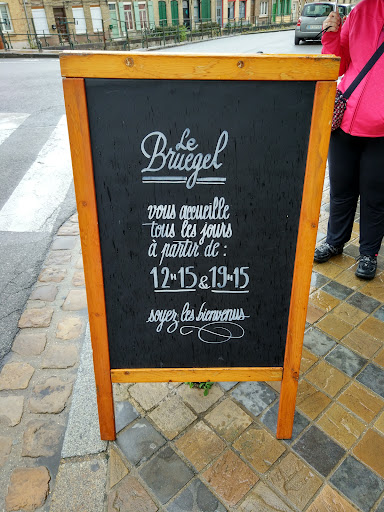 Le
Bruegel
vous accueille
tous les jours
à partir de :
12H15 & 19H15
soyez les bienvenus